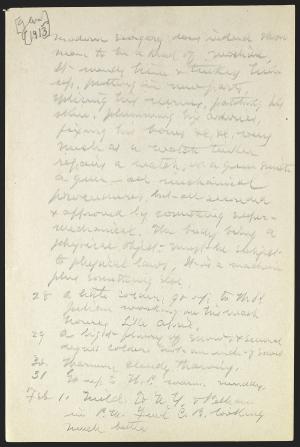 [Jan
1913]
modern surgery does indeed show
man to be a kind of machine,
It mends him & tucks him
up, putting in new parts,
splicing his nerves, patching his
skin, plumming his arteries,
fixing his bones &c, &c, very
much as a watch tinker
repairs a watch, or a gun smith
a gun – all mechanical
procedures, but all seconded
& approved by something super-
mechanical. The body being a
physical object must be subject
to physical laws, It is a machine
plus something else.
28 A little colder, go up to W.P.
Julian working on his wash
house, Like April,
29 A light flurry of snow & several
degrees colder with an inch of snow
30. Warming, cloudy, thawing.
31 Go up to W.P. warm, muddy.
Feb 1. Mild. To N.Y. & Pelham
in P.M. Find C.B. looking
much better